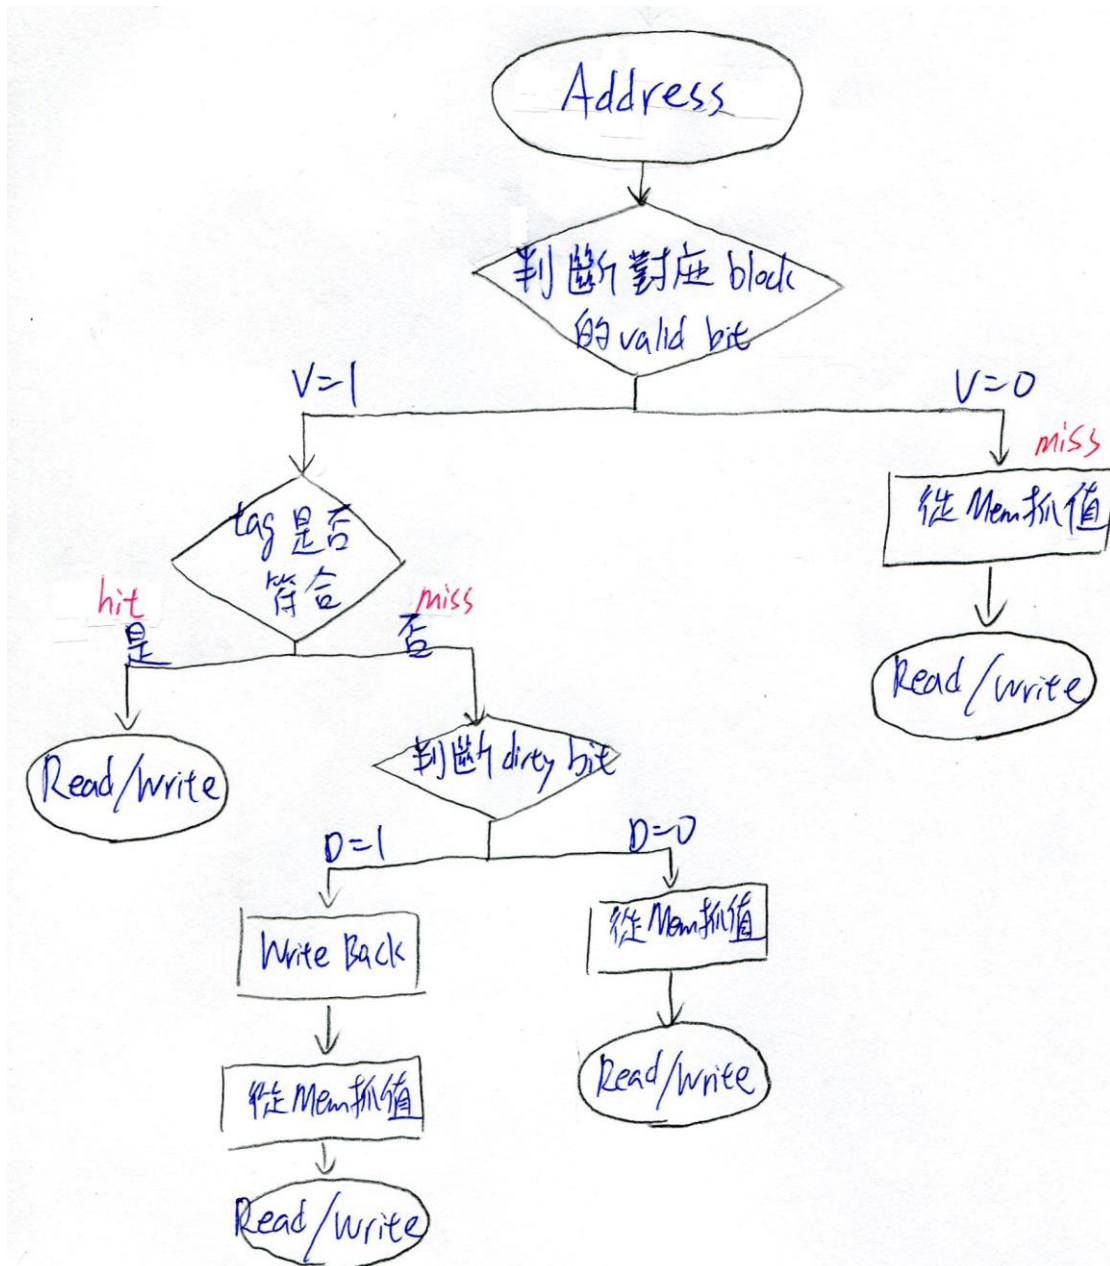 Address
判斷對应block
的valid bit
V=1
V=0
miss
從Mem抓值
Read/Write
tag是否
符合
hit
是
miss
否
Read/Write
判斷dirty bit
D=1
D=0
Write Back
從Mem抓值
從Mem抓值
Read/Write
Read/Write